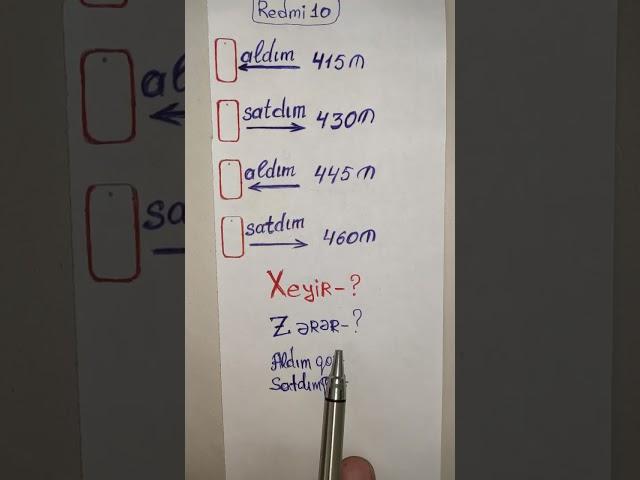 Redmi 10
aldım 415₼
satdım 430₼
aldım 445₼
satdım 460₼
Xeyir-?
Zərər-?
Aldım
Satdım